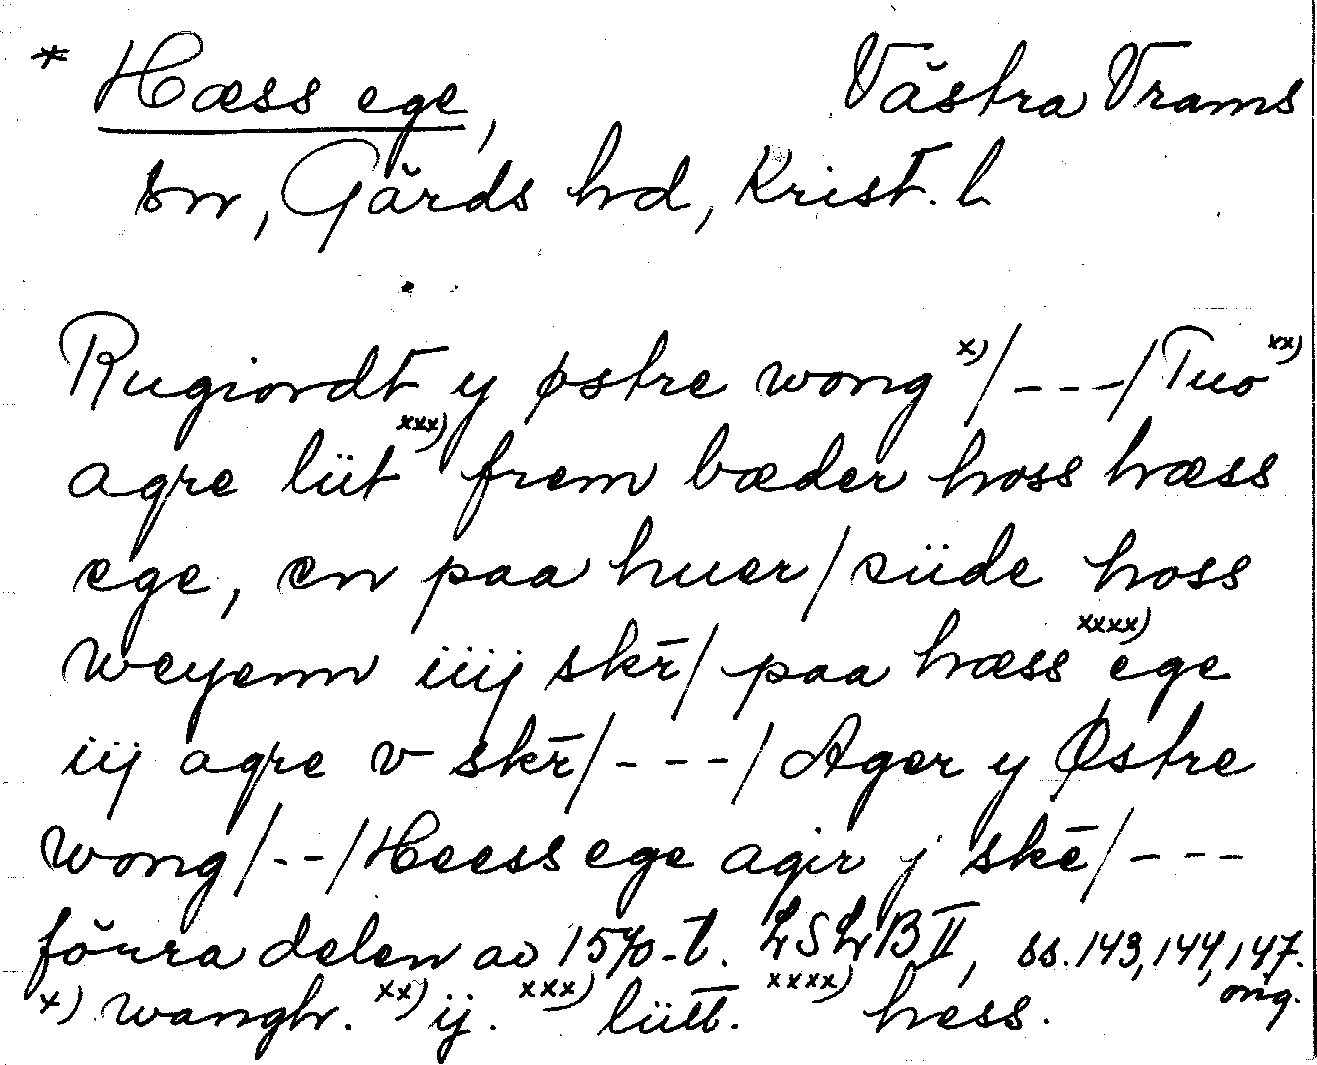 * Hæss ege, Västra Vrams
sn, Gärds hd, Krist. l
Rugiordt y østre wong x) / - - - / Tuo xx)
agre lüt xxx) frem bæder hoss hæss
ege, en paa huer / süde hoss
weyenn iiij skr̄ / paa hæss xxxx) ege
iij agre v skr̄ / - - - / Ager y Østre
wong / - - / Heess ege agir j skē / - - -
förra delen av 1570-t. LSLB II, ss. 143, 144, 147.
orig.
x) wangh. xx) ij. xxx) lütt. xxxx) hess.